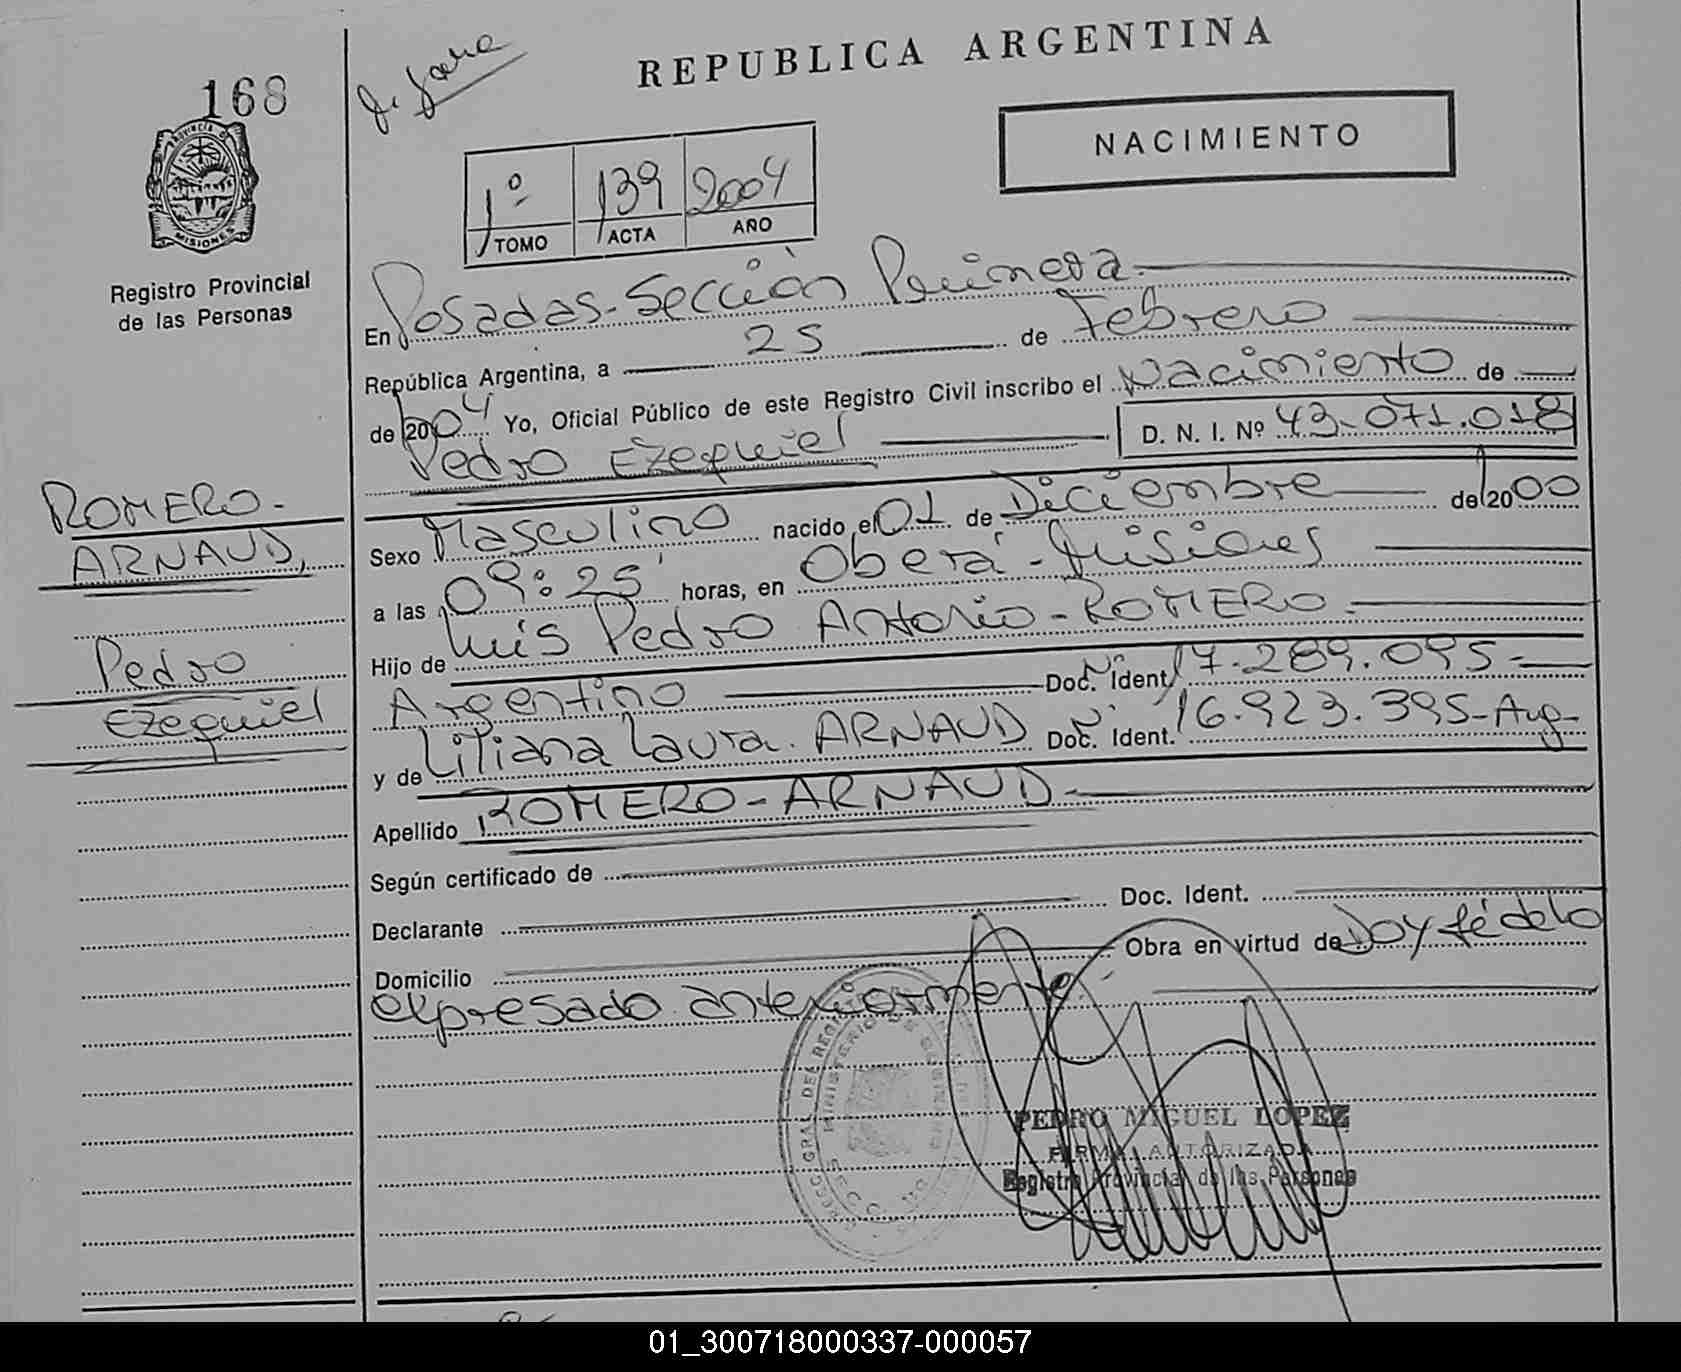 168
REPUBLICA ARGENTINA
NACIMIENTO
1º 139 2004
TOMO ACTA AÑO
PROVINCIA DE
MISIONES
Registro Provincial
de las Personas
En Posadas - Sección Primera.
República Argentina, a 25 de Febrero
de 2004 Yo, Oficial Público de este Registro Civil inscribo el Nacimiento de
Pedro Ezequiel D. N. I. Nº 43.071.018
Sexo Masculino nacido el 01 de Diciembre de 2000
a las 09:25' horas, en Oberá - Misiones
Hijo de Luis Pedro Antonio - ROMERO -
Argentino Doc. Nº Ident. 17.289.095 -
y de Liliana Laura. ARNAUD Doc. Nº Ident. 16.923.395 - Arg -
Apellido ROMERO - ARNAUD -
Según certificado de
Declarante Doc. Ident.
Domicilio Obra en virtud de Doy fé de lo
expresado anteriormente.
ROMERO -
ARNAUD,
Pedro
Ezequiel
PEDRO MIGUEL LOPEZ
FIRMA AUTORIZADA
Registro Provincial de las Personas
01_300718000337-000057